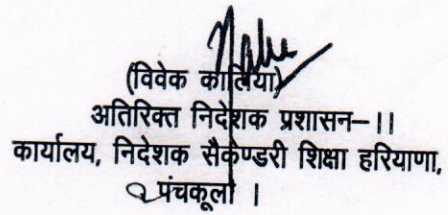 (विवेक कालिया)
अतिरिक्त निदेशक प्रशासन-।।
कार्यालय, निदेशक सैकेण्डरी शिक्षा हरियाणा,
पंचकूला ।